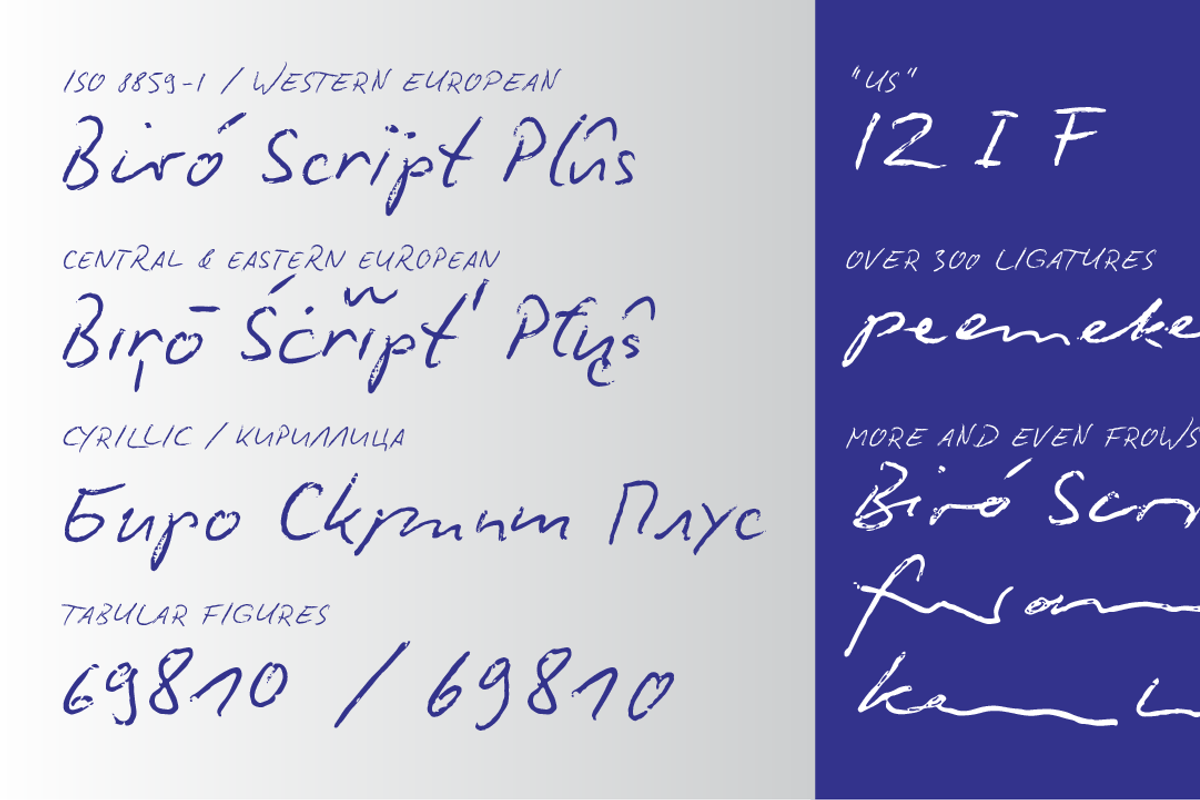 ISO 8859-1 / WESTERN EUROPEAN
Biró Scrïpt Plûs
CENTRAL & EASTERN EUROPEAN
CYRILLIC / КИРИЛЛИЦА
Биро Скрипт Плус
TABULAR FIGURES
69810 / 69810
"US"
12 I F
OVER 300 LIGATURES
peemeke
MORE AND EVEN FROWS
Biró Scr